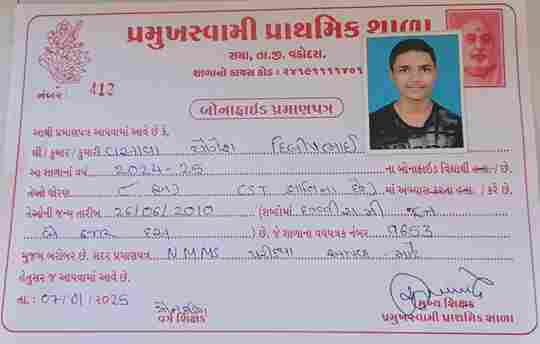 પ્રમુખસ્વામી પ્રાથમિક શાળા
સમા, તા.જી. વડોદરા.
શાળાનો ડાયસ કોડ : ૨૪૧૯૧૧૧૧૪૦૧
નંબર : 112
બોનાફાઈડ પ્રમાણપત્ર
આથી પ્રમાણપત્ર આપવામાં આવે છે કે,
શ્રી / કુમાર / કુમારી યોગેશ દિલીપભાઈ
આ શાળાનાં વર્ષ 2024-25 ના બોનાફાઈડ વિદ્યાર્થી હતા / છે.
તેઓ ધોરણ ૮ CST માં અભ્યાસ કરતા હતા / કરે છે.
તેઓની જન્મ તારીખ 26/06/2010 (શબ્દોમાં છવ્વીસમી જૂન
બે હજાર દસ ) છે. જે શાળાના વયપત્રક નંબર 9653
મુજબ બરોબર છે. સદર પ્રમાણપત્ર NMMS પરીક્ષા માટે
હેતુસર જ આપવામાં આવે છે.
તા. : 07/01/2025
વર્ગ શિક્ષક
મુખ્ય શિક્ષક
પ્રમુખસ્વામી પ્રાથમિક શાળા